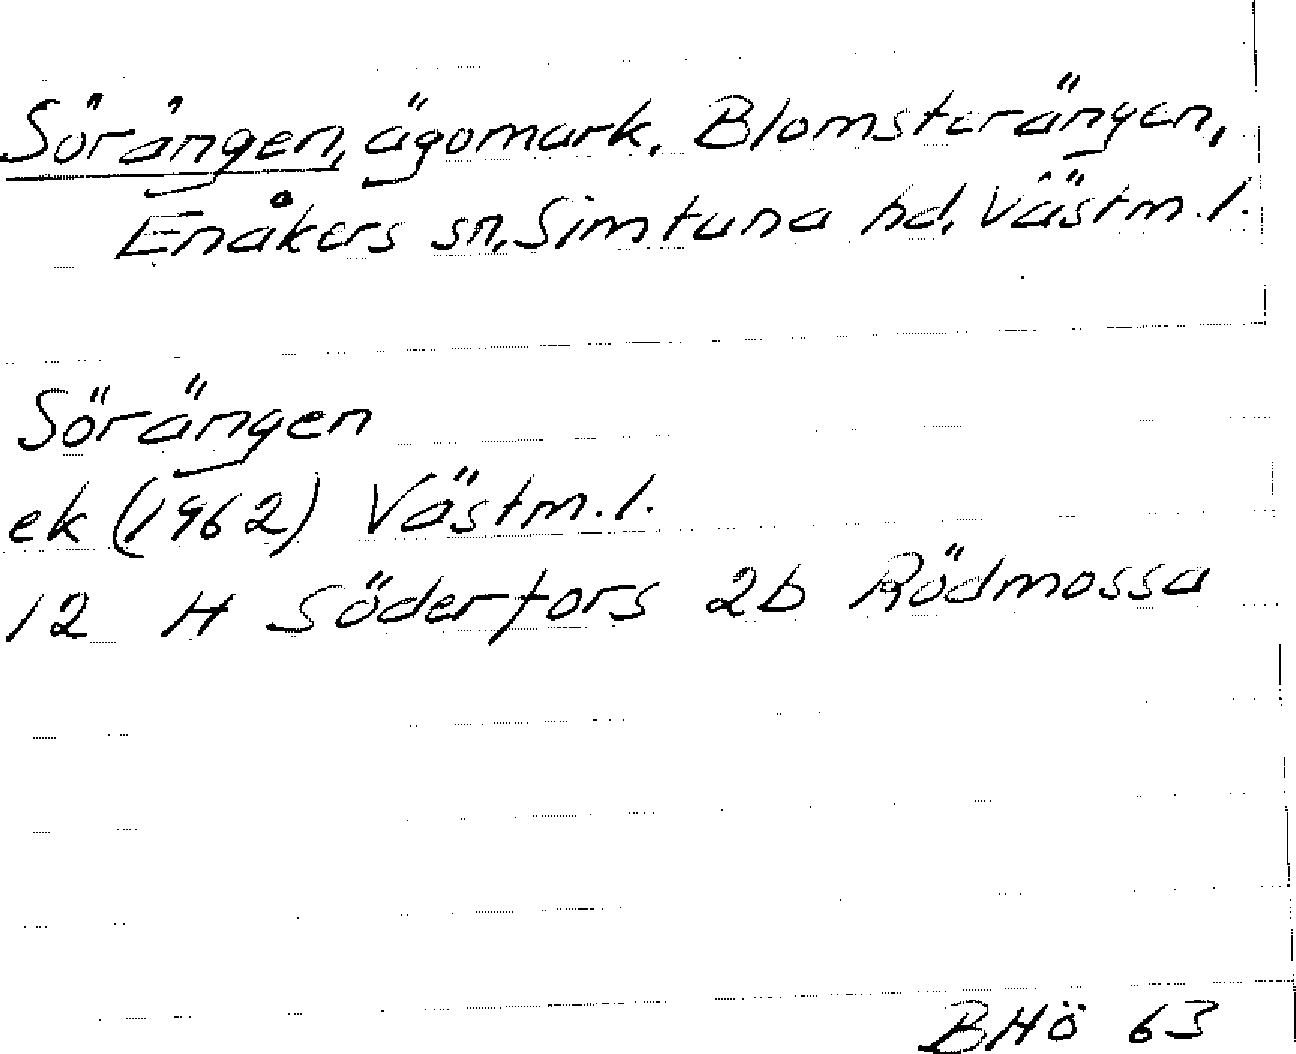 Sörängen, ägomark, Blomsterängen,
Enåkers sn, Simtuna hd, Västm. l.
Sörängen
ek (1962) Västm. l.
12 H Söderfors 2b Rödmossa
BHö 63